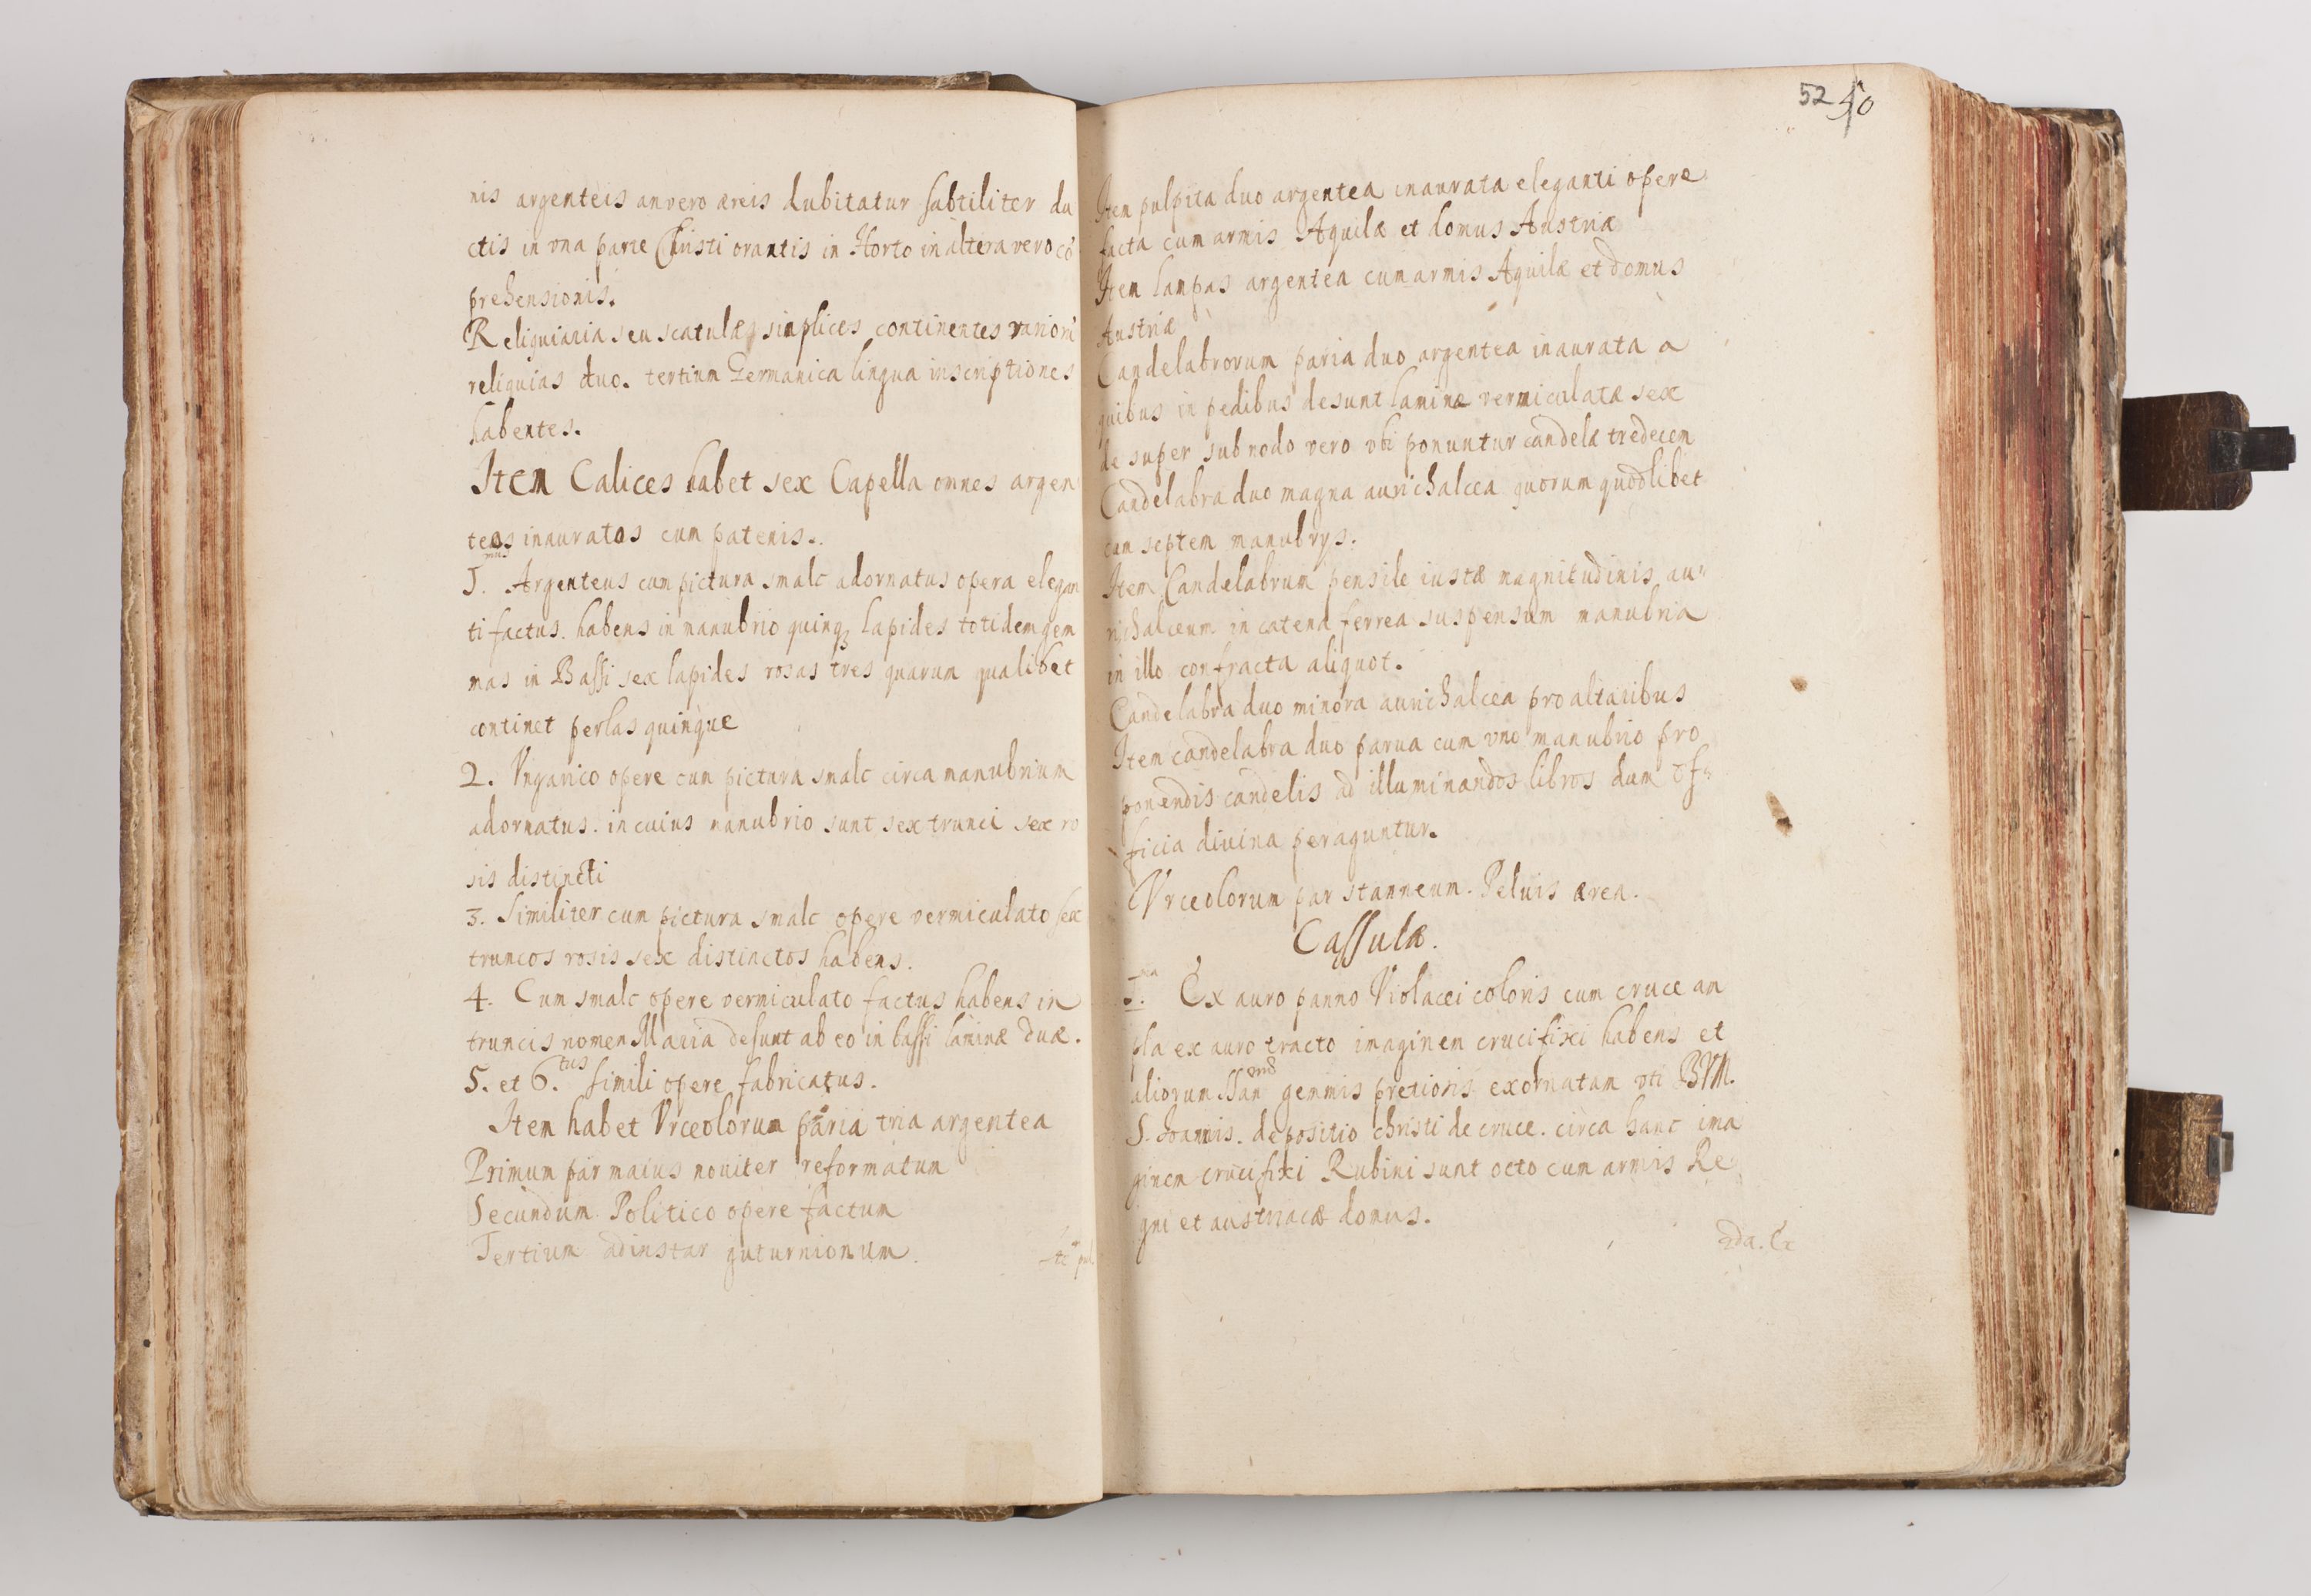 nis argenteis an vero æreis dubitatur subtiliter du
ctis in vna parte Christi orantis in Horto in altera vero cõ
prehensionis.
Reliquiaria seu scatulæ simplices continentes varior
reliquias duo. tertium Germanica lingua inscriptiones
habentes.
Item Calices habet sex Capella omnes argen
teos inauratos cum patenis.
1.mus Argenteus cum pictura smalc adornatus opera elegan
ti factus. habens in manubrio quinq; lapides totidem gem
mas in Bassi sex lapides rosas tres quarum qualibet
continet perlas quinque
2. Vngarico opere cum pictura smalc circa manubrium
adornatus. in cuius manubrio sunt sex trunci sex ro
sis distincti
3. Similiter cum pictura smalc opere vermiculato sex
truncos rosis sex distinctos habens.
4. Cum smalc opere vermiculato factus habens in
truncis nomen Maria desunt ab eo in bassi laminæ duæ.
5. et 6.tus simili opere fabricatus.
Item habet Vrceolorum paria tria argentea
Primum par maius nouiter reformatum
Secundum Politico opere factum
Tertium adinstar guturnionum.
52 50
Item pulpita duo argentea inaurata eleganti opere
facta cum armis Aquilæ et domus Austriæ
Item lampas argentea cum armis Aquilæ et domus
Austriæ
Candelabrorum paria duo argentea inaurata a
quibus in pedibus desunt laminæ vermiculatæ sex
de super sub nodo vero vbi ponuntur candelæ tredecem
Candelabra duo magna aurichalcea quorum quodlibet
cum septem manubrys.
Item Candelabrum pensile iustæ magnitudinis au
richalceum in catena ferrea suspensum manubria
in illo confracta aliquot.
Candelabra duo minora aurichalcea pro altaribus
Item candelabra duo parua cum vno manubrio pro
ponendis candelis ad illuminandos libros dum of
ficia diuina peraguntur.
Vrceolorum par stanneum. Peluis ærea.
Cassulæ.
1.ma Ex auro panno Violacei coloris cum cruce am
pla ex auro tracto imaginem crucifixi habens et
aliorum gemmis pretioris exornatam vti BVM.
S. Joannis. depositio christi de cruce. circa hanc ima
ginem crucifixi Rubini sunt octo cum armis Re
gni et austriacæ domus.
2da.